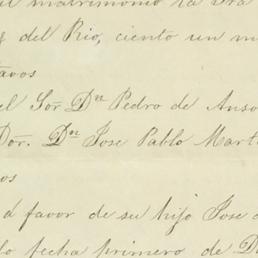 matrimonio la Sra
del Rio, ciento un m
tavos
el Sor. Dn Pedro de Anso
Dor. Dn Jose Pablo Mart
os
á favor de su hijo Jose
fecha primero de D